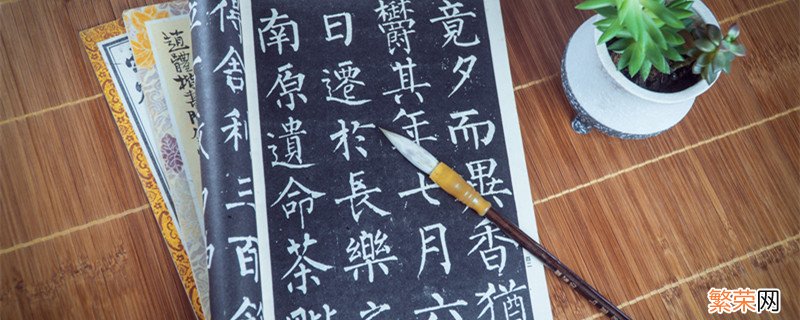 竟夕而異香猶
鬱其年七月六
日遷於長樂之
南原遺命茶
得舍利三百餘
繁荣网